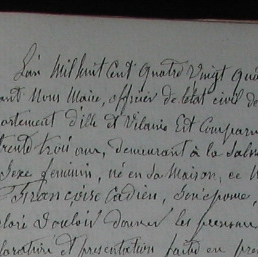 L'an Mil huit Cent quatre Vingt
ant Nous Maire, officier de l'état civil de
artement d'ille et Vilaine Est Comparu
trente trois ans, demeurant à la
Sexe féminin, né en sa Maison, ce
Françoise Cadieu, Son épouse,
claré Vouloir donner les prénoms
claration et présentation faite en